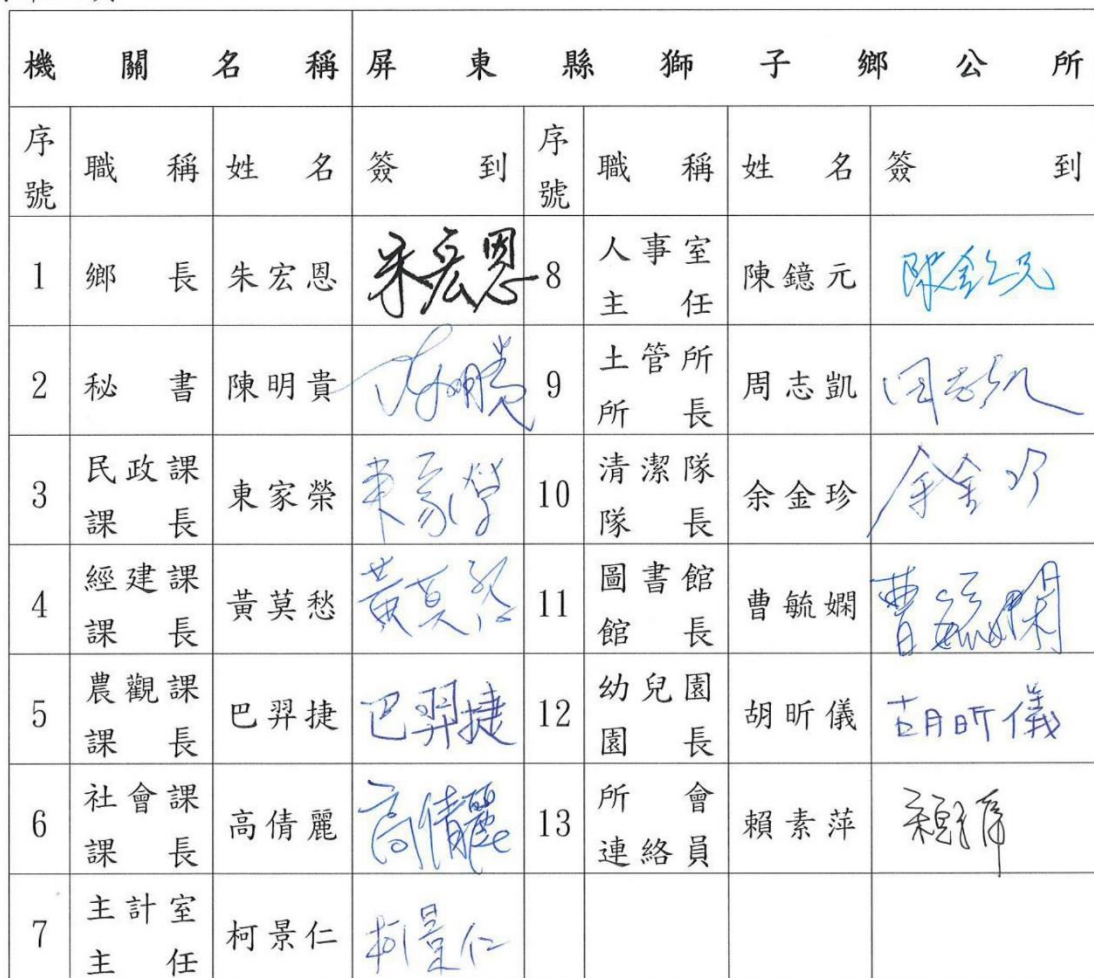 機關名稱 屏東縣獅子鄉公所
序號 職稱 姓名 簽到 序號 職稱 姓名 簽到
1 鄉長 朱宏恩 朱宏恩 8 人事室主任 陳鐿元
2 秘書 陳明貴 9 土管所所長 周志凱 周志凱
3 民政課課長 東家榮 東家榮 10 清潔隊隊長 余金珍 余金珍
4 經建課課長 黃莫愁 黃莫愁 11 圖書館館長 曹毓嫻 曹毓嫻
5 農觀課課長 巴羿捷 巴羿捷 12 幼兒園園長 胡昕儀 胡昕儀
6 社會課課長 高倩麗 高倩麗 13 所會連絡員 賴素萍
7 主計室主任 柯景仁 柯景仁